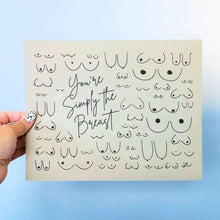 You're
Simply the
Breast